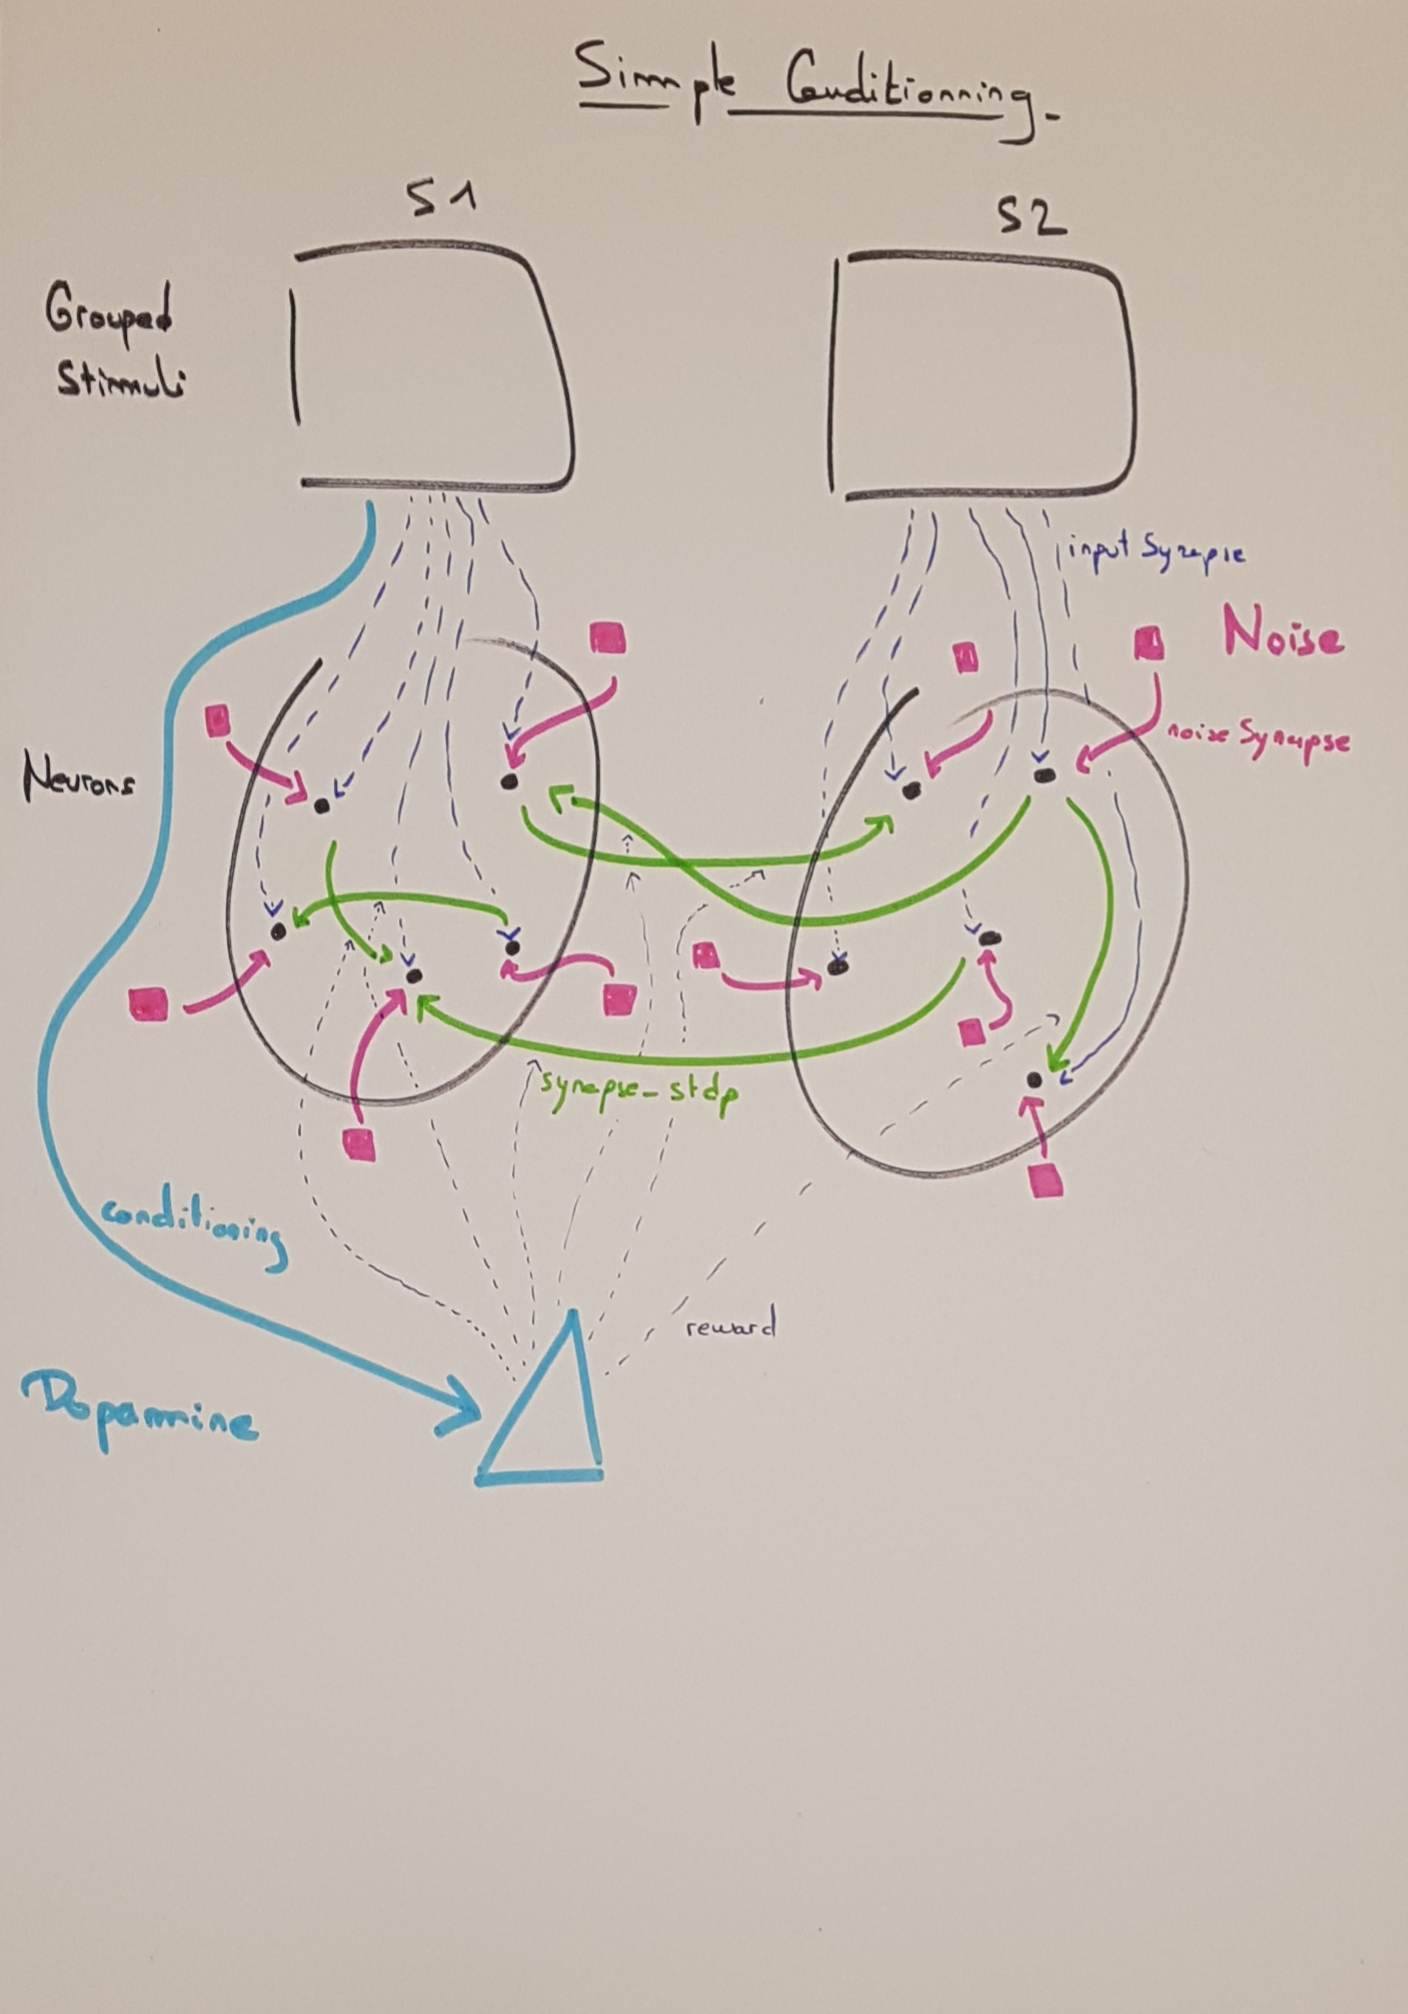 Simple Conditionning.
S1
S2
Grouped
Stimuli
input Synapse
Noise
noise Synapse
Neurons
synapse_stdp
conditioning
reward
Dopamine